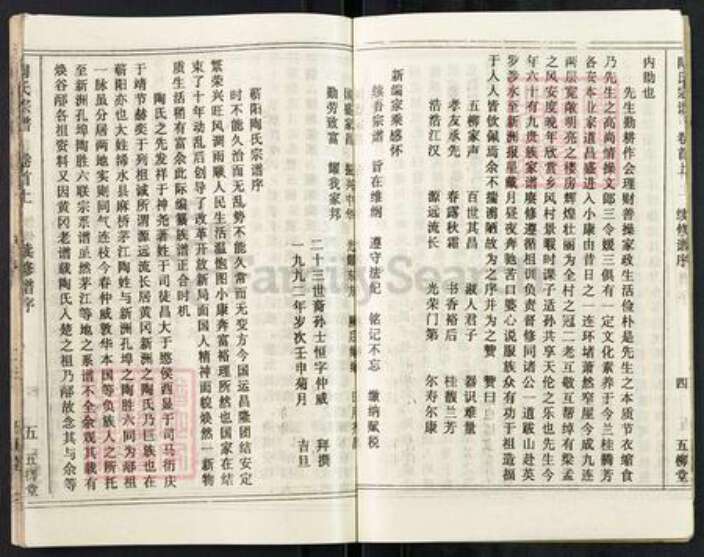 陶氏宗谱 卷首上 续修谱序 四 五柳堂
内助也
先生勤耕作会理财善操家政生活俭朴是先生之本质节衣缩食
乃先生之高尚情操文郎三令媛三俱有一定文化素养于今兰桂腾芳
各安本业家道昌盛进入小康由昔日之一连环堵萧然窄屋今成九连
两层宽敞明亮之楼房辉煌壮丽为全村之冠二老互敬互帮绰有梁孟
之风安度晚年欣赏乡风村景暇时课子适孙共享天伦之乐也先生今
年六十有九贵族家谱赓修遵循祖训负责督修同诸公一道跋山赴英
罗涉水至新洲报星戴月昼夜奔驰苦口婆心说服族众有功于祖造福
于人人皆钦佩焉余不揣谫陋故为之序并为之赞 赞曰
五柳家声 百世其昌 淑人君子 器识难量
孝友承先 春露秋霜 书香裕后 桂馥兰芳
浩浩江汉 源远流长 光荣门第 尔寿尔康
新编家乘感怀
续吾宗谱 旨在维纲 遵守法纪 铭记不忘 缴纳赋税
国强家昌 振兴中华
勤劳致富 耀我家邦
二十三世裔孙士恒字仲威 拜撰
一九九二年岁次壬申菊月 吉旦
蕲阳陶氏宗谱序
时不能久治而无乱势不能久常而无变方今国运昌隆团结安定
繁荣兴旺风调雨顺人民生活温饱图小康奔富裕理所然也国家在结
束了十年动乱后创导了改革开放新局面国人精神面貌焕然一新物
质生活稍有富余此际编纂族谱正合时机
陶氏之先发祥于神尧著姓于司徒昌大于愍侯酉显于司马衍庆
于靖节赫奕于列祖诚所谓源远流长居黄冈新洲之陶氏乃巨族也在
蕲阳亦也大姓浠水县麻桥茅江陶姓与新洲孔埠之陶胜六同为郧祖
一脉虽分居两地实则同气连枝今春仲威敦华本国等负族人之所托
至新洲孔埠陶胜六联宗系谱虽然茅江等地之系谱不全余观其载有
焕谷郧各祖资料又因黄冈老谱载陶氏入楚之祖乃郧故念其与余等
陶氏宗谱 卷首上 续修谱序 五 五柳堂
FamilySearch